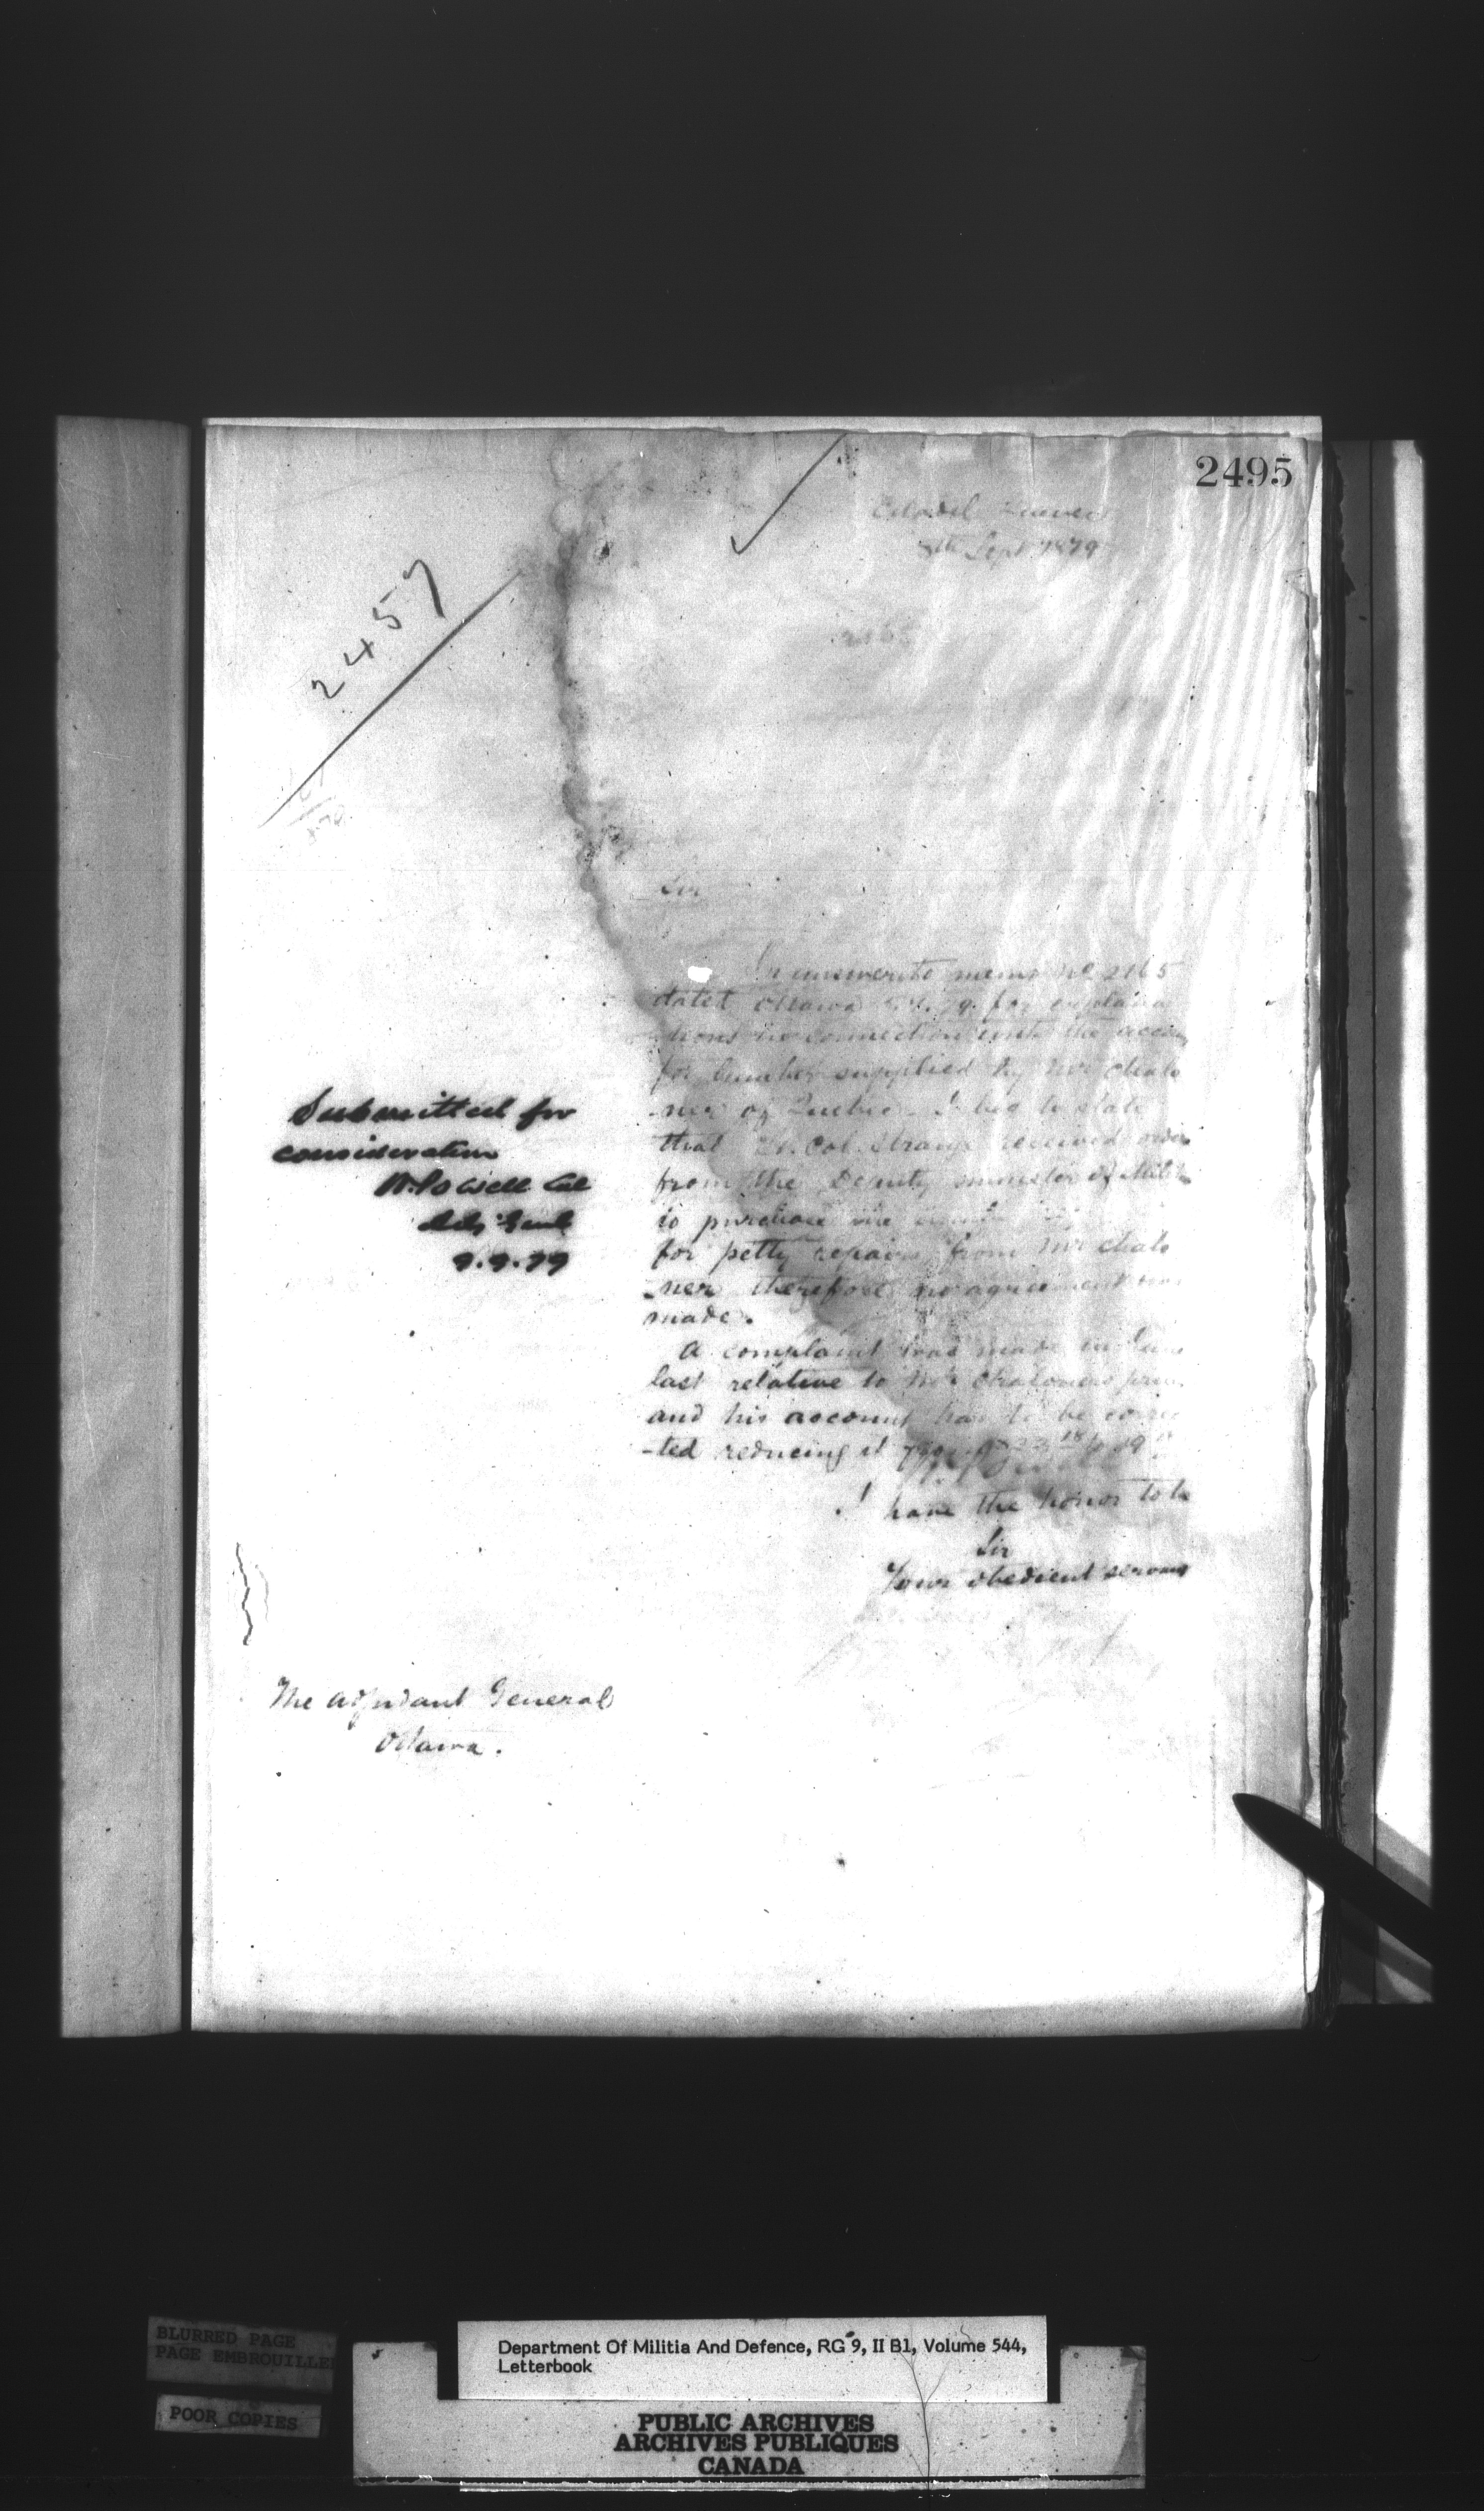 2495
Citadel Quebec
8th Sept 1879
2457
Sir
In answer to memo No 2165
datet Ottawa 79. for explana
-tions in connection with the accou
for lumber supplied by Mr Chalo
-ner of Quebec. I beg to state
that Lt. Col. Strange received order
from the Deputy minister of Militi
to purchase the
for petty repairs from Mr Chalo
-ner therefore no agreement was
made.
A complaint was made in June
last relative to Mr Chaloners
and his account had to be correc
-ted reducing it
I have the honor to be
Sir
Your obedient servant
Submitted for
consideration
W. Powell Col
Adj Genl
9.9.79
The Adjudant General
Ottawa.
BLURRED PAGE
PAGE EMBROUILLEE
POOR COPIES
Department Of Militia And Defence, RG 9, II B1, Volume 544,
Letterbook
PUBLIC ARCHIVES
ARCHIVES PUBLIQUES
CANADA